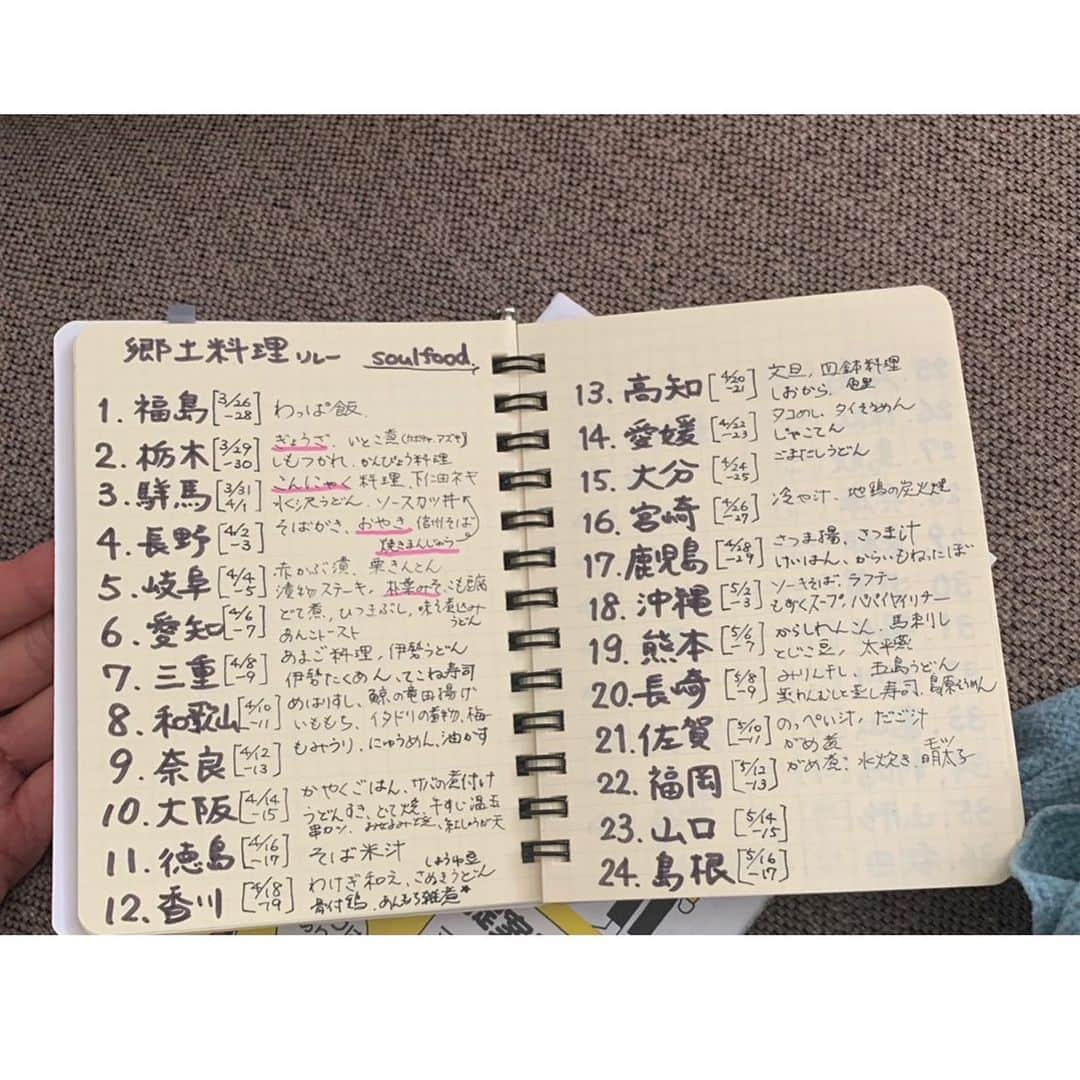 郷土料理リレー soulfood.
1. 福島 [3/26-28] わっぱ飯.
2. 栃木 [3/29-30] ぎょうざ、いとこ煮(カボチャ、アズキ)
しもつかれ、かんぴょう料理
3. 群馬 [3/31 4/1] こんにゃく料理、下仁田ネギ
水沢うどん、ソースカツ丼
4. 長野 [4/2-3] そばがき、おやき、信州そば
焼きまんじゅう
5. 岐阜 [4/4-5] 赤かぶ漬、栗きんとん
漬物ステーキ、朴葉みそ、こも豆腐
6. 愛知 [4/6-7] どて煮、ひつまぶし、味そ煮込みうどん
あんこトースト
7. 三重 [4/8-9] あまご料理、伊勢うどん
伊勢たくあん、てこね寿司
8. 和歌山 [4/10-11] めはりすし、鯨の竜田揚げ
いももち、イタドリの煮物、梅
9. 奈良 [4/12-13] もみうり、にゅうめん、油かす
10. 大阪 [4/14-15] かやくごはん、サバの煮付け
うどんすき、どて焼、牛すじ
串カツ、紅しょうが天
11. 徳島 [4/16-17] そば米汁
12. 香川 [4/18-19] しょうゆ豆
わけぎ和え、さぬきうどん
骨付鶏、あんもち雑煮
13. 高知 [4/20-21] 文旦、皿鉢料理
しおから
14. 愛媛 [4/22-23] タコめし、タイそうめん
じゃこてん
15. 大分 [4/24-25] ごまだしうどん
16. 宮崎 [4/26-27] 冷や汁、地鶏の炭火焼
17. 鹿児島 [4/28-29] さつま揚、さつま汁
けいはん、からいもねったぼ
18. 沖縄 [5/2-3] ソーキそば、ラフテー
もずくスープ、パパイヤイリチー
19. 熊本 [5/6-7] からしれんこん、馬刺し
とじこ豆、太平燕
20. 長崎 [5/8-9] みりん干し、五島うどん
茶わんむしと蒸し寿司、島原そうめん
21. 佐賀 [5/10-11] のっぺい汁、だご汁
がめ煮
22. 福岡 [5/12-13] がめ煮、水炊き、モツ、明太子
23. 山口 [5/14-15]
24. 島根 [5/16-17]